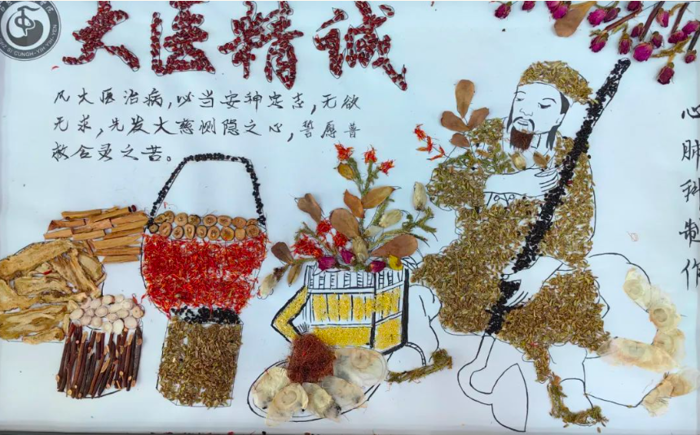 大医精诚
凡大医治病，必当安神定志，无欲
无求，先发大慈恻隐之心，誓愿普
救含灵之苦。
心肺科制作